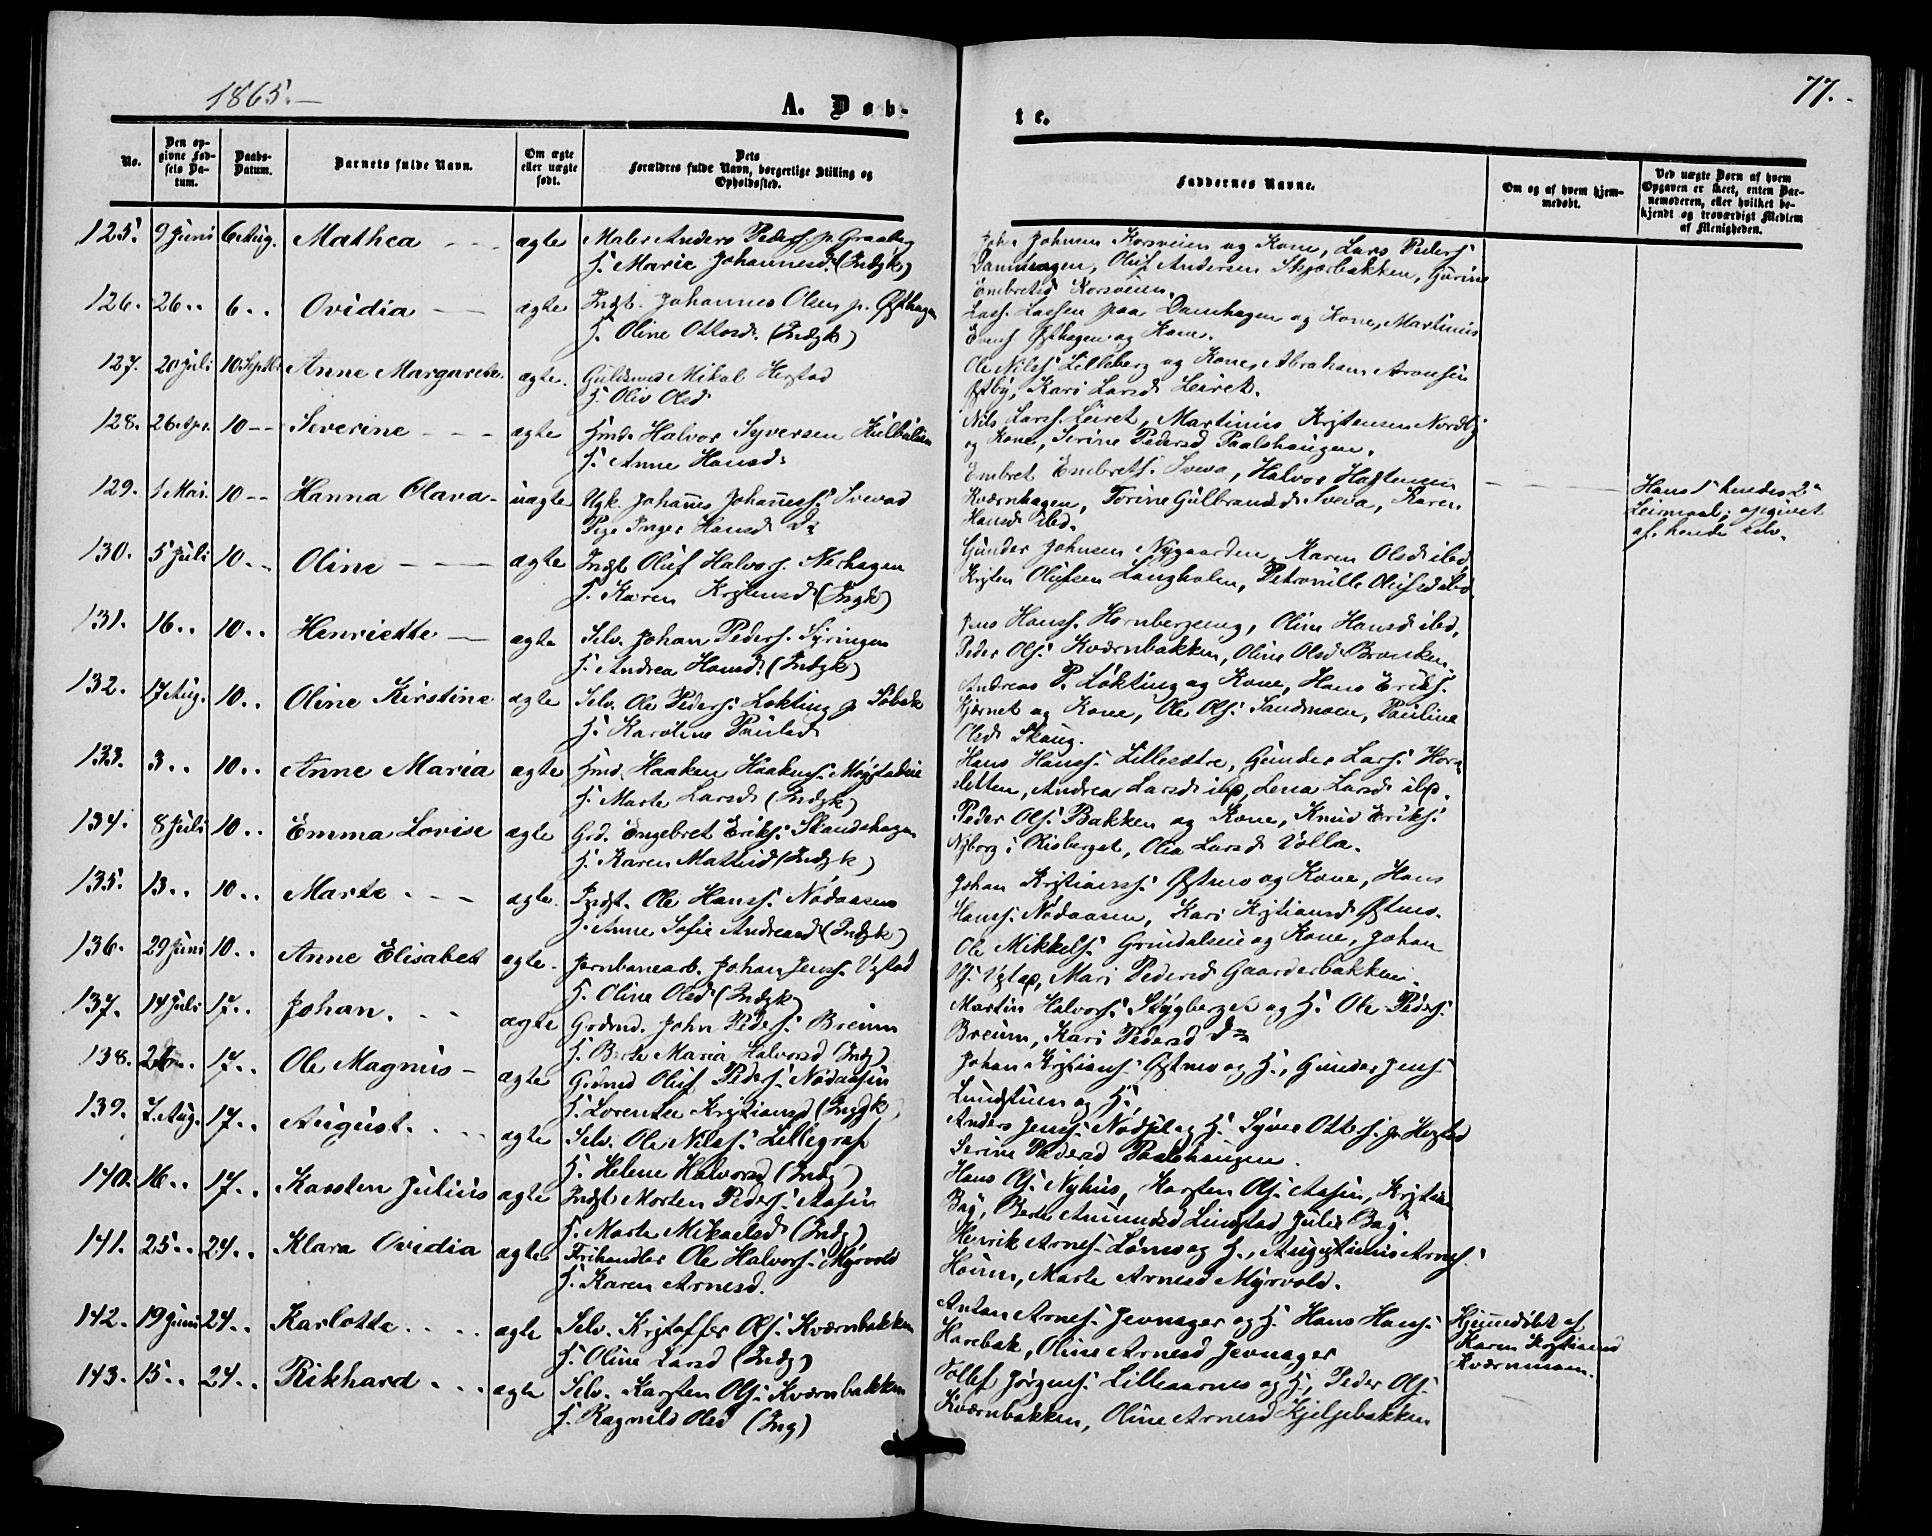 1865.
77.
A. Døb-
te.
No.
Den op-
givne Fød-
sels Da-
tum.
Daabs-
Datum.
Barnets fulde Navn.
Om ægte
eller uægte
født.
Dets
Forældres fulde Navn, borgerlige Stilling og
Opholdssted.
Faddernes Navne.
Om og af hvem hjem-
medøbt.
Ved uægte Børn af hvem
Opgaven er skeet, enten Bar-
nemoderen, eller hvilket be-
kjendt og troværdigt Medlem
af Menigheden.
125. 9 Juni 6 Aug. Mathea ægte Maler Anders Peders. p. Graaberg
H. Marie Johannesd. (Indgk)
John Johnsen Korsveien og Kone, Lars Peders
Damhagen, Oluf Andersen Skjærbakken, Gurine
Embretsd Korsveien.
126. 26.. 6.. Ovidia ægte Indst. Johannes Olsen p. Østhagen
H. Oline Ottosd. (Indgk)
Lars Larsen paa Damhagen og Kone, Martinus
Evens Østhagen og Kone.
127. 20 Juli 10 Septbr. Anne Margarete ægte. Guldsmed Mikal Hegstad
H. Oliv Olsd
Ole Nilss Lilleberg og Kone, Abraham Aronsen
Østby, Kari Larsd Leiret.
128. 26 Apr. 10 -- Severine ægte Hmd. Halvor Syversen
H. Anne Hansd.
Nils Larss. Leiret, Martinus Kristensen Nordby
og Kone, Serine Pedersd Paalshaugen.
129. 1 Mai. 10 -- Hanna Olava - uægte Ugk. Johannes Johanness.
Pige Inger Hansd Do
Embret Embrets. Sveva, Halvor
Kværnhagen, Torine Gulbrandsd Sveva, Karen
Hansd ibd.
Hans d hendes 2
Leiermaal; opgivet
af hende selv.
130. 5 Juli 10 -- Oline ægte Indst Oluf Halvors. Nerhagen
H. Karen Kristensd (Ingk)
Gunder Johnsen Nygaarden, Karen Olsd ibd,
Kristen Olufsen Langholen, Petronille Olufsd ibd.
131. 16.. 10.. Henriette ægte Selv. Johan Peders. Syringen
H. Andrea Hansd. (Indgk)
Jens Hanss. Hornbergeng, Oline Hansd ibd,
Peder Ols. Kværnbakken, Oline Olsd Brænken.
132. 17 Aug. 10.. Oline Kirstine ægte Selv. Ole Peders. Løkting p
H. Karoline Paulsd
Andreas P. Løkting og Kone, Hans Eriks.
Kjernet og Kone, Ole Ols. Sandmoen, Pauline
Olsd Skaug.
133. 3.. 10.. Anne Maria ægte Hmd. Haaken Haakens.
H. Marte Larsd (Indgk)
Hans Hanss. Lillesætre, Gunder Lars. Horn-
sletten, Andrea Larsd ibd, Lena Larsd ibd.
134. 8 Juli 10.. Emma Lovise ægte Grd. Engebret Eriks. Skandshagen
H. Karen (Indgk)
Peder Ols. Bakken og Kone, Knud Eriks.
Nyborg i Risberget, Olia Larsd Volla.
135. 13.. 10.. Marte ægte. Indst. Ole Hanss. Nødaasen
H. Anne Sofie Andreasd (Indgk)
Johan Kristianss. Østmo og Kone, Hans
Hanss. Nødaasen, Kari Kristiansd Østmo.
136. 29 Juni 10.. Anne Elisabet ægte. Jernbanearb. Johan Jenss.
H. Oline Olsd (Indgk)
Ole Mikkels. Grindalseie og Kone, Johan
Mari Pedersd Gaarderbakken.
137. 14 Juli 17.. Johan. ægte Grdmd. John Peders. Breum
H. Berte Maria Halvorsd (Indg)
Martin Halvors. Stygberget og H. Ole Peders.
Breum, Kari Pedersd Do
138. 17.. Ole Magnus - ægte Grdmd Oluf Peders. Nødaasen
H. Lorentse Kristiansd (Ingdk)
Johan Kristians. Østmo og H., Gunder Jens
Lundstuen og H.
139. 7. Aug. 17.. August. ægte Selv. Ole Nilss. Lillegraf
H. Helene Halvorsd (Indg)
Anders Jenss. og H. Syver Otters. p. Hegstad
Serine Pedersd Paalshaugen.
140. 16.. 17.. Karsten Julius ægte Indst Morten Peders. Aasen
H. Marte Mikaelsd (Indg)
Hans Ols. Nyhus, Karsten Ols. Aasen, Kristian
Bag, Berte Amundsd Julie Bag
141. 25.. 24.. Klara Ovidia ægte Frihandler Ole Halvors. Myrvold
H. Karen Arnesd.
Henrik Arnes. og H., Augustinus Arnes.
Houm, Marte Arnesd Myrvold.
142. 19 Juni 24.. Karlotte. ægte Selv. Kristoffer Ols. Kværnbakken
H. Oline Larsd (Indg)
Anton Arnes. Jevnager og H. Hans Hans.
Harebak, Oline Arnesd Jevnager
Hjemmedøbt af
Karen Kristiansd
Kværnmoen.
143. 15.. 24.. Rikhard. ægte Selv. Karsten Ols. Kværnbakken
H. Ragnild Olsd (Ing)
Tollef Jørgens. Lilleaarnes og H., Peder Ols.
Kværnbakken, Oline Arnesd